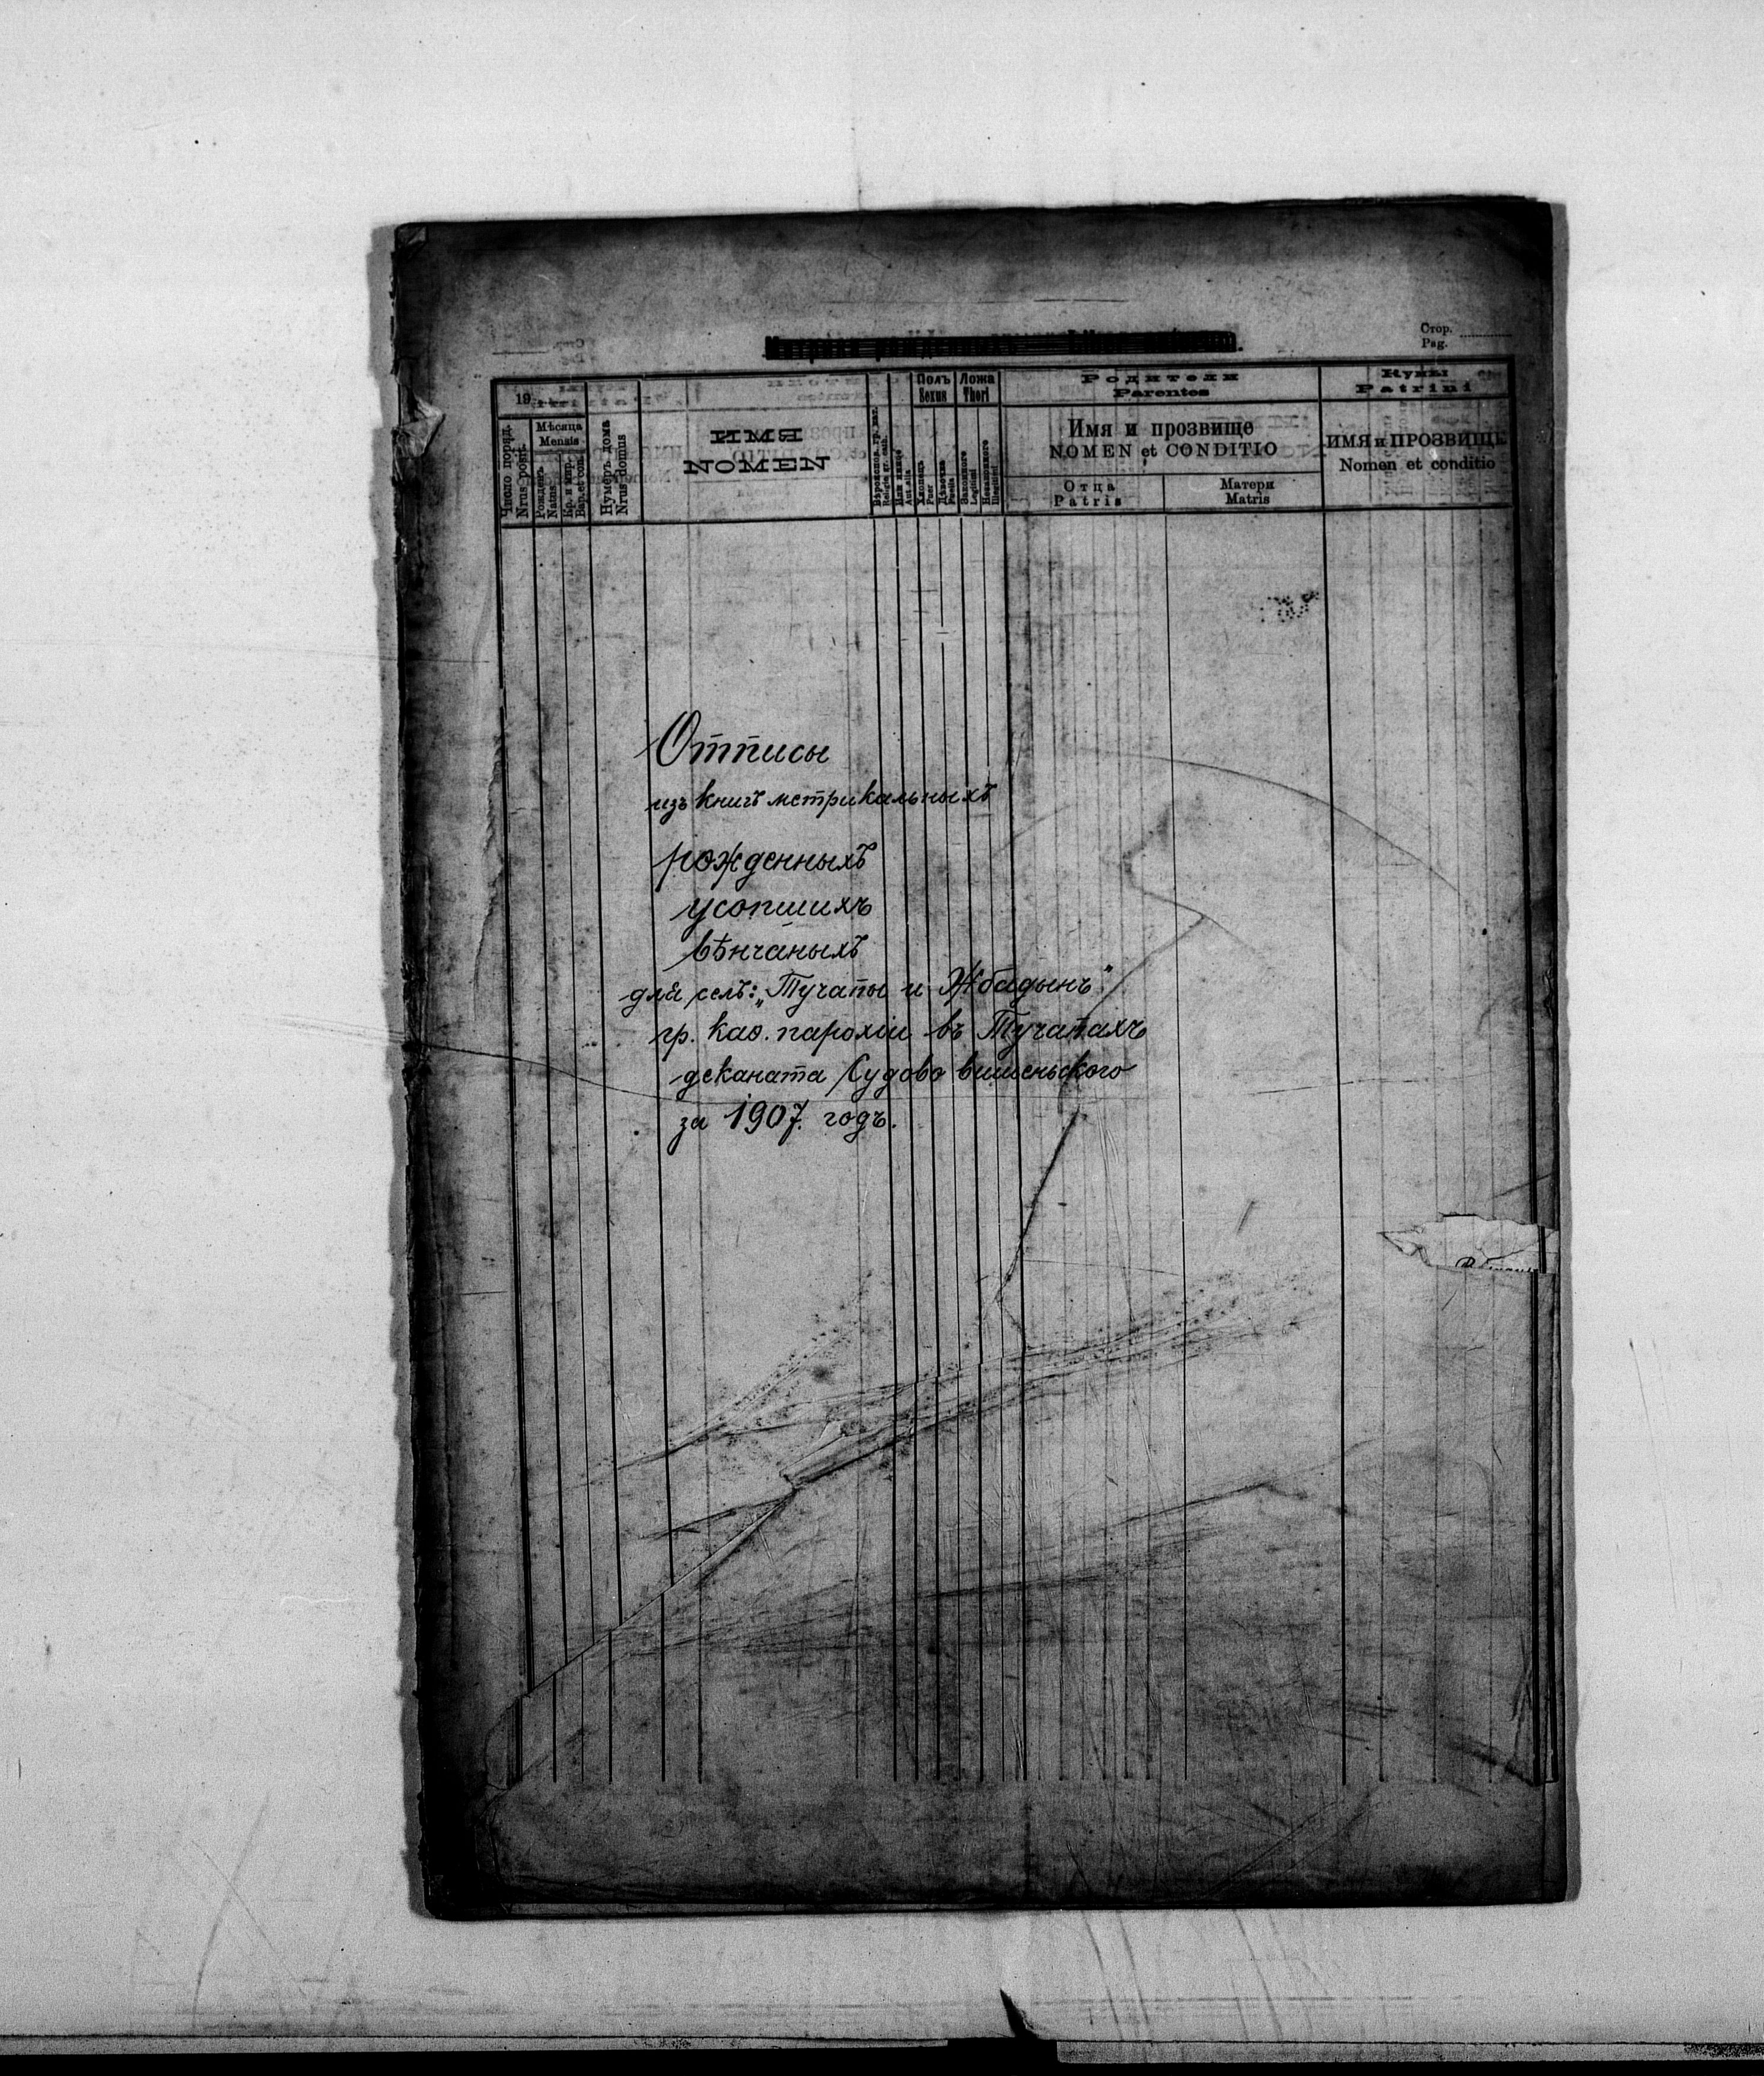 Стор.
Pag.
19
Мѣсяца
Mensis
Число поряд.
Nrus
Рожденъ
Natus
Кр. и мѵр.
Bap. et con.
Нумеръ дома
Nrus domus
ИМЯ
NOMEN
Religio gr. cath.
Aut alia
Полъ
Sexus
Хлопецъ
Puer
Ложа
Thori
Законного
Legitimi
Незаконного
Illegitimi
Родители
Parentes
Имя и прозвище
NOMEN et CONDITIO
Отца
Patris
Матери
Matris
Кумы
Patrini
ИМЯ и ПРОЗВИЩЕ
Nomen et conditio
Отписы
изъ книгъ метрикальныхъ
рожденныхъ
усопшихъ
вѣнчаныхъ
для селъ: „Тучапы и Жбадынь"
гр. каѳ. парохіи въ Тучапахъ
деканата Судово вишеньского
за 1907. годъ.